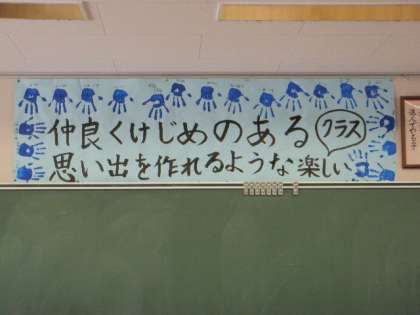 仲良くけじめのある
クラス
思い出を作れるような楽しい